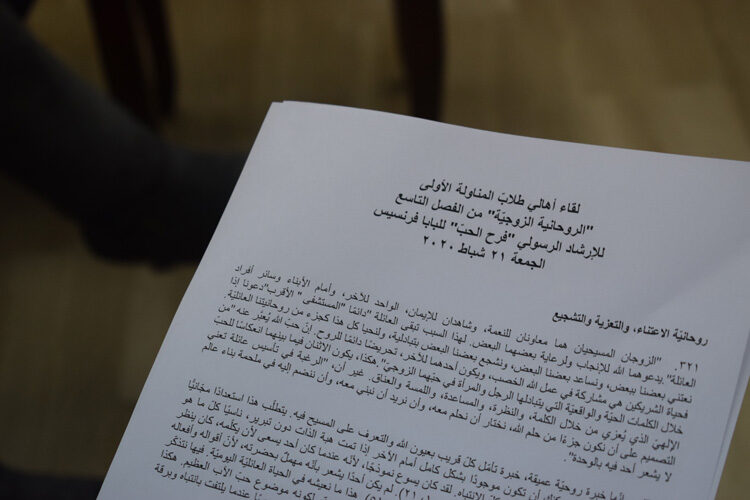 لقاء أهالي طلاب المناولة الأولى
"الروحانية الزوجيّة" من الفصل التاسع
للإرشاد الرسولي "فرح الحبّ" للبابا فرنسيس
الجمعة ٢١ شباط ٢٠٢٠
روحانيّة الاعتناء، والتعزية والتشجيع
٣٢١. "الزوجان المسيحيان هما معاونان للنعمة، وشاهدان للإيمان، الواحد للآخر، وأمام الأبناء وسائر أفراد
العائلة". يدعوهما الله للإنجاب ولرعاية بعضهما البعض. لهذا السبب تبقى العائلة "دائمًا "المستشفى" الأقرب" دعونا إذا
نعتني بعضنا ببعض، ونساعد بعضنا البعض، ونشجع بعضنا البعض بتبادلية، ولنحيا كل هذا كجزء من روحانيتنا العائليّة.
فحياة الشريكين هي مشاركة في عمل الله الخصب، ويكون أحدهما للآخر، تحريضًا دائمًا للروح. إنّ حبّ الله يُعبّر عنه "من
خلال الكلمات الحيّة والواقعيّة التي يتبادلها الرجل والمرأة في حبّهما الزوجيّ" هكذا، يكون الاثنان فيما بينهما انعكاسًا للحبّ
الإلهيّ الذي يُعزي من خلال الكلمة، والنظرة، والمساعدة، واللمسة والعناق. غير أن، "الرغبة في تأسيس عائلة تعني
التصميم على أن نكون جزءًا من حلم الله، نختار أن نحلم معه، وأن نريد أن نبني معه، وأن ننضم إليه في ملحمة بناء عالم
لا يشعر أحد فيه بالوحدة".
خبرة روحيّة عميقة، خبرة تأمّل كلّ قريب بعيون الله والتعرف على المسيح فيه. يتطلّب هذا استعدادًا مجانيًّا
نكون موجودًا بشكل كامل أمام الآخر إذا تمت هبة الذات دون تبرير، ناسيًا كلّ ما هو
الانتباه. لقد كان يسوع نموذجًا، لأنّه عندما كان أحد يسعى لأن يكلّمه، كان ينظر
٢١). لم يكن أحدًا يشعر بأنّه مهمل بحضرته، لأنّ أقواله وأفعاله
هذا ما نعيشه في الحياة العائليّة اليوميّة. فيها نتذكّر
لكونه موضوع حبّ الأب العظيم. هكذا
عندما يلتفت بانتباه وبرقة